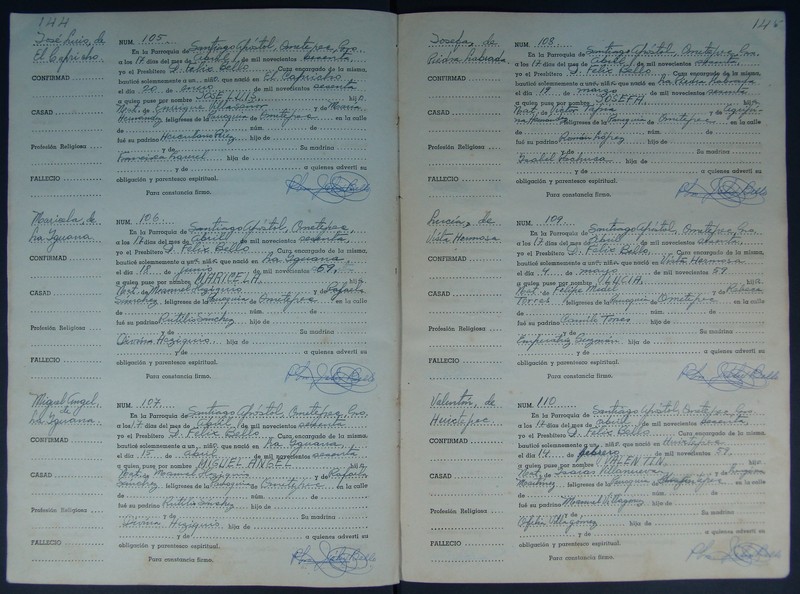 144
José Luis, de
El Capricho.
NUM. 105.
En la Parroquia de Santiago Apóstol, Ometepec, Gro.
a los 17 días del mes de Abril de mil novecientos sesenta,
yo el Presbítero J. Félix Bello Cura encargado de la misma,
CONFIRMAD
bauticé solemnemente a un niñ. que nació en El Capricho
el día 20 de enero de mil novecientos sesenta
a quien puse por nombre JOSE LUIS hij
CASAD
de Enrique Villasanor y de María
Hernández feligreses de la de Ometepec en la calle
de núm. de
fué su padrino Herculano
Profesión Religiosa
y de Su madrina
Francisca hija de
y de a quienes advertí su
FALLECIO
obligación y parentesco espiritual.
Para constancia firmo.
Maricela, de
La Iguana.
NUM. 106
En la Parroquia de Santiago Apóstol, Ometepec,
a los 17 días del mes de Abril de mil novecientos sesenta,
yo el Presbítero J. Félix Bello Cura encargado de la misma,
CONFIRMAD
bauticé solemnemente a un niñ. que nació en La Iguana
el día 18 de junio de mil novecientos 59,
a quien puse por nombre MARICELA hij
CASAD
de Manuel y de Rafaela
Sánchez feligreses de la de Ometepec en la calle
de núm. de
fué su padrino Rutilio Sánchez
Profesión Religiosa
y de Su madrina
hija de
y de a quienes advertí su
FALLECIO
obligación y parentesco espiritual.
Para constancia firmo.
Miguel Angel,
de
La Iguana.
NUM. 107.
En la Parroquia de Santiago Apóstol, Ometepec, Gro.
a los 17 días del mes de Abril de mil novecientos sesenta
yo el Presbítero J. Félix Bello Cura encargado de la misma,
CONFIRMAD
bauticé solemnemente a un niñ. que nació en La Iguana
el día 15 de abril de mil novecientos sesenta
a quien puse por nombre MIGUEL ANGEL hij
CASAD
de Manuel y de Rafaela
Sánchez feligreses de la de Ometepec en la calle
de núm. de
fué su padrino Rutilio Sánchez
Profesión Religiosa
y de Su madrina
hija de
y de a quienes advertí su
FALLECIO
obligación y parentesco espiritual.
Para constancia firmo.
145
Josefa, de
Piedra Labrada
NUM. 108
En la Parroquia de Santiago Apóstol, Ometepec, Gro.
a los 17 días del mes de Abril de mil novecientos sesenta
yo el Presbítero J. Félix Bello Cura encargado de la misma,
CONFIRMAD
bauticé solemnemente a un niñ. que nació en La Piedra Labrada
el día 19 de marzo de mil novecientos sesenta
a quien puse por nombre JOSEFA hij
CASAD
de Victor y de
feligreses de la de Ometepec en la calle
de núm. de
fué su padrino Román López
Profesión Religiosa
y de Su madrina
Isabel hija de
y de a quienes advertí su
FALLECIO
obligación y parentesco espiritual.
Para constancia firmo.
Lucía, de
Vista Hermosa
NUM. 109
En la Parroquia de Santiago Apóstol, Ometepec, Gro.
a los 17 días del mes de Abril de mil novecientos sesenta
yo el Presbítero J. Félix Bello Cura encargado de la misma,
CONFIRMAD
bauticé solemnemente a un niñ. que nació en Vista Hermosa
el día 4 de mayo de mil novecientos 59
a quien puse por nombre LUCIA hij
CASAD
de Felipe y de Rebeca
Torres feligreses de la de Ometepec en la calle
de núm. de
fué su padrino Camilo Torres
Profesión Religiosa
y de Su madrina
Emperatriz Guzmán hija de
y de a quienes advertí su
FALLECIO
obligación y parentesco espiritual.
Para constancia firmo.
Valentín, de
Huixtepec
NUM. 110
En la Parroquia de Santiago Apóstol, Ometepec, Gro.
a los 17 días del mes de abril de mil novecientos sesenta,
yo el Presbítero J. Félix Bello Cura encargado de la misma,
CONFIRMAD
bauticé solemnemente a un niñ. que nació en Huixtepec
el día 14 de febrero de mil novecientos 59,
a quien puse por nombre VALENTIN hij
CASAD
de Villanueva y de
Martínez feligreses de la de en la calle
de núm. de
fué su padrino Manuel Villagómez
Profesión Religiosa
y de Su madrina
Ofelia Villagómez hija de
y de a quienes advertí su
FALLECIO
obligación y parentesco espiritual.
Para constancia firmo.